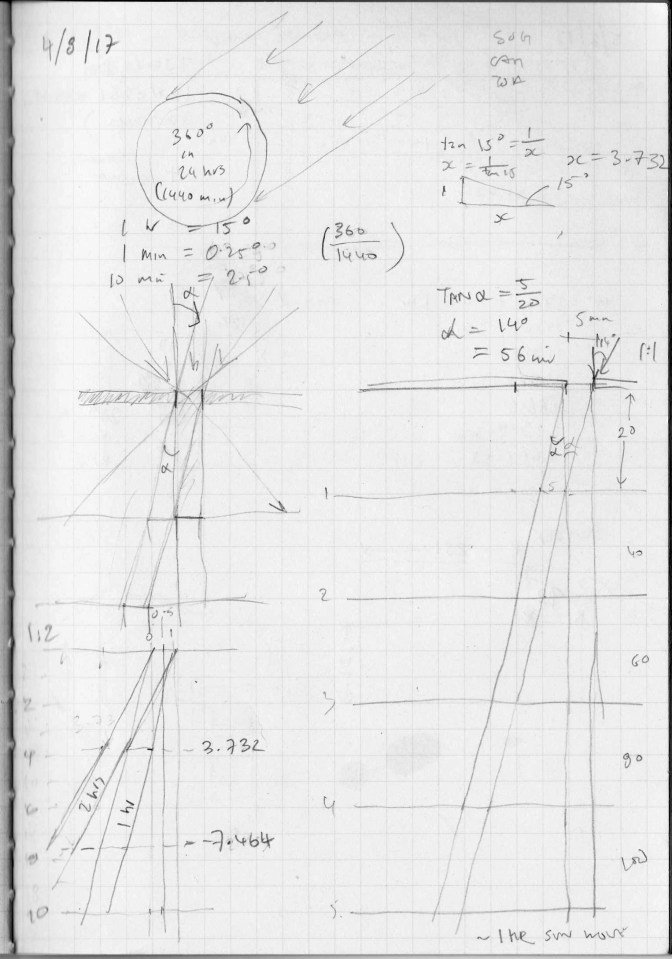 4/8/17
SOH
CAH
TOA
360°
in
24 hrs
(1440 min)
tan 15° = 1/x
x = 1/tan 15
x = 3.732
1
15°
x
1 hr = 15°
1 min = 0.25°
10 min = 2.5°
(360/1440)
α
TAN α = 5/20
α = 14°
= 56 min
5 mm
14°
1:1
20
α
α
α
5
1
40
2
0.5
0
1
1:2
60
2
3
3.73
4
3.732
80
2 hrs
1 hr
6
4
8
7.464
100
10
5
~ 1 HR SUN MOVE